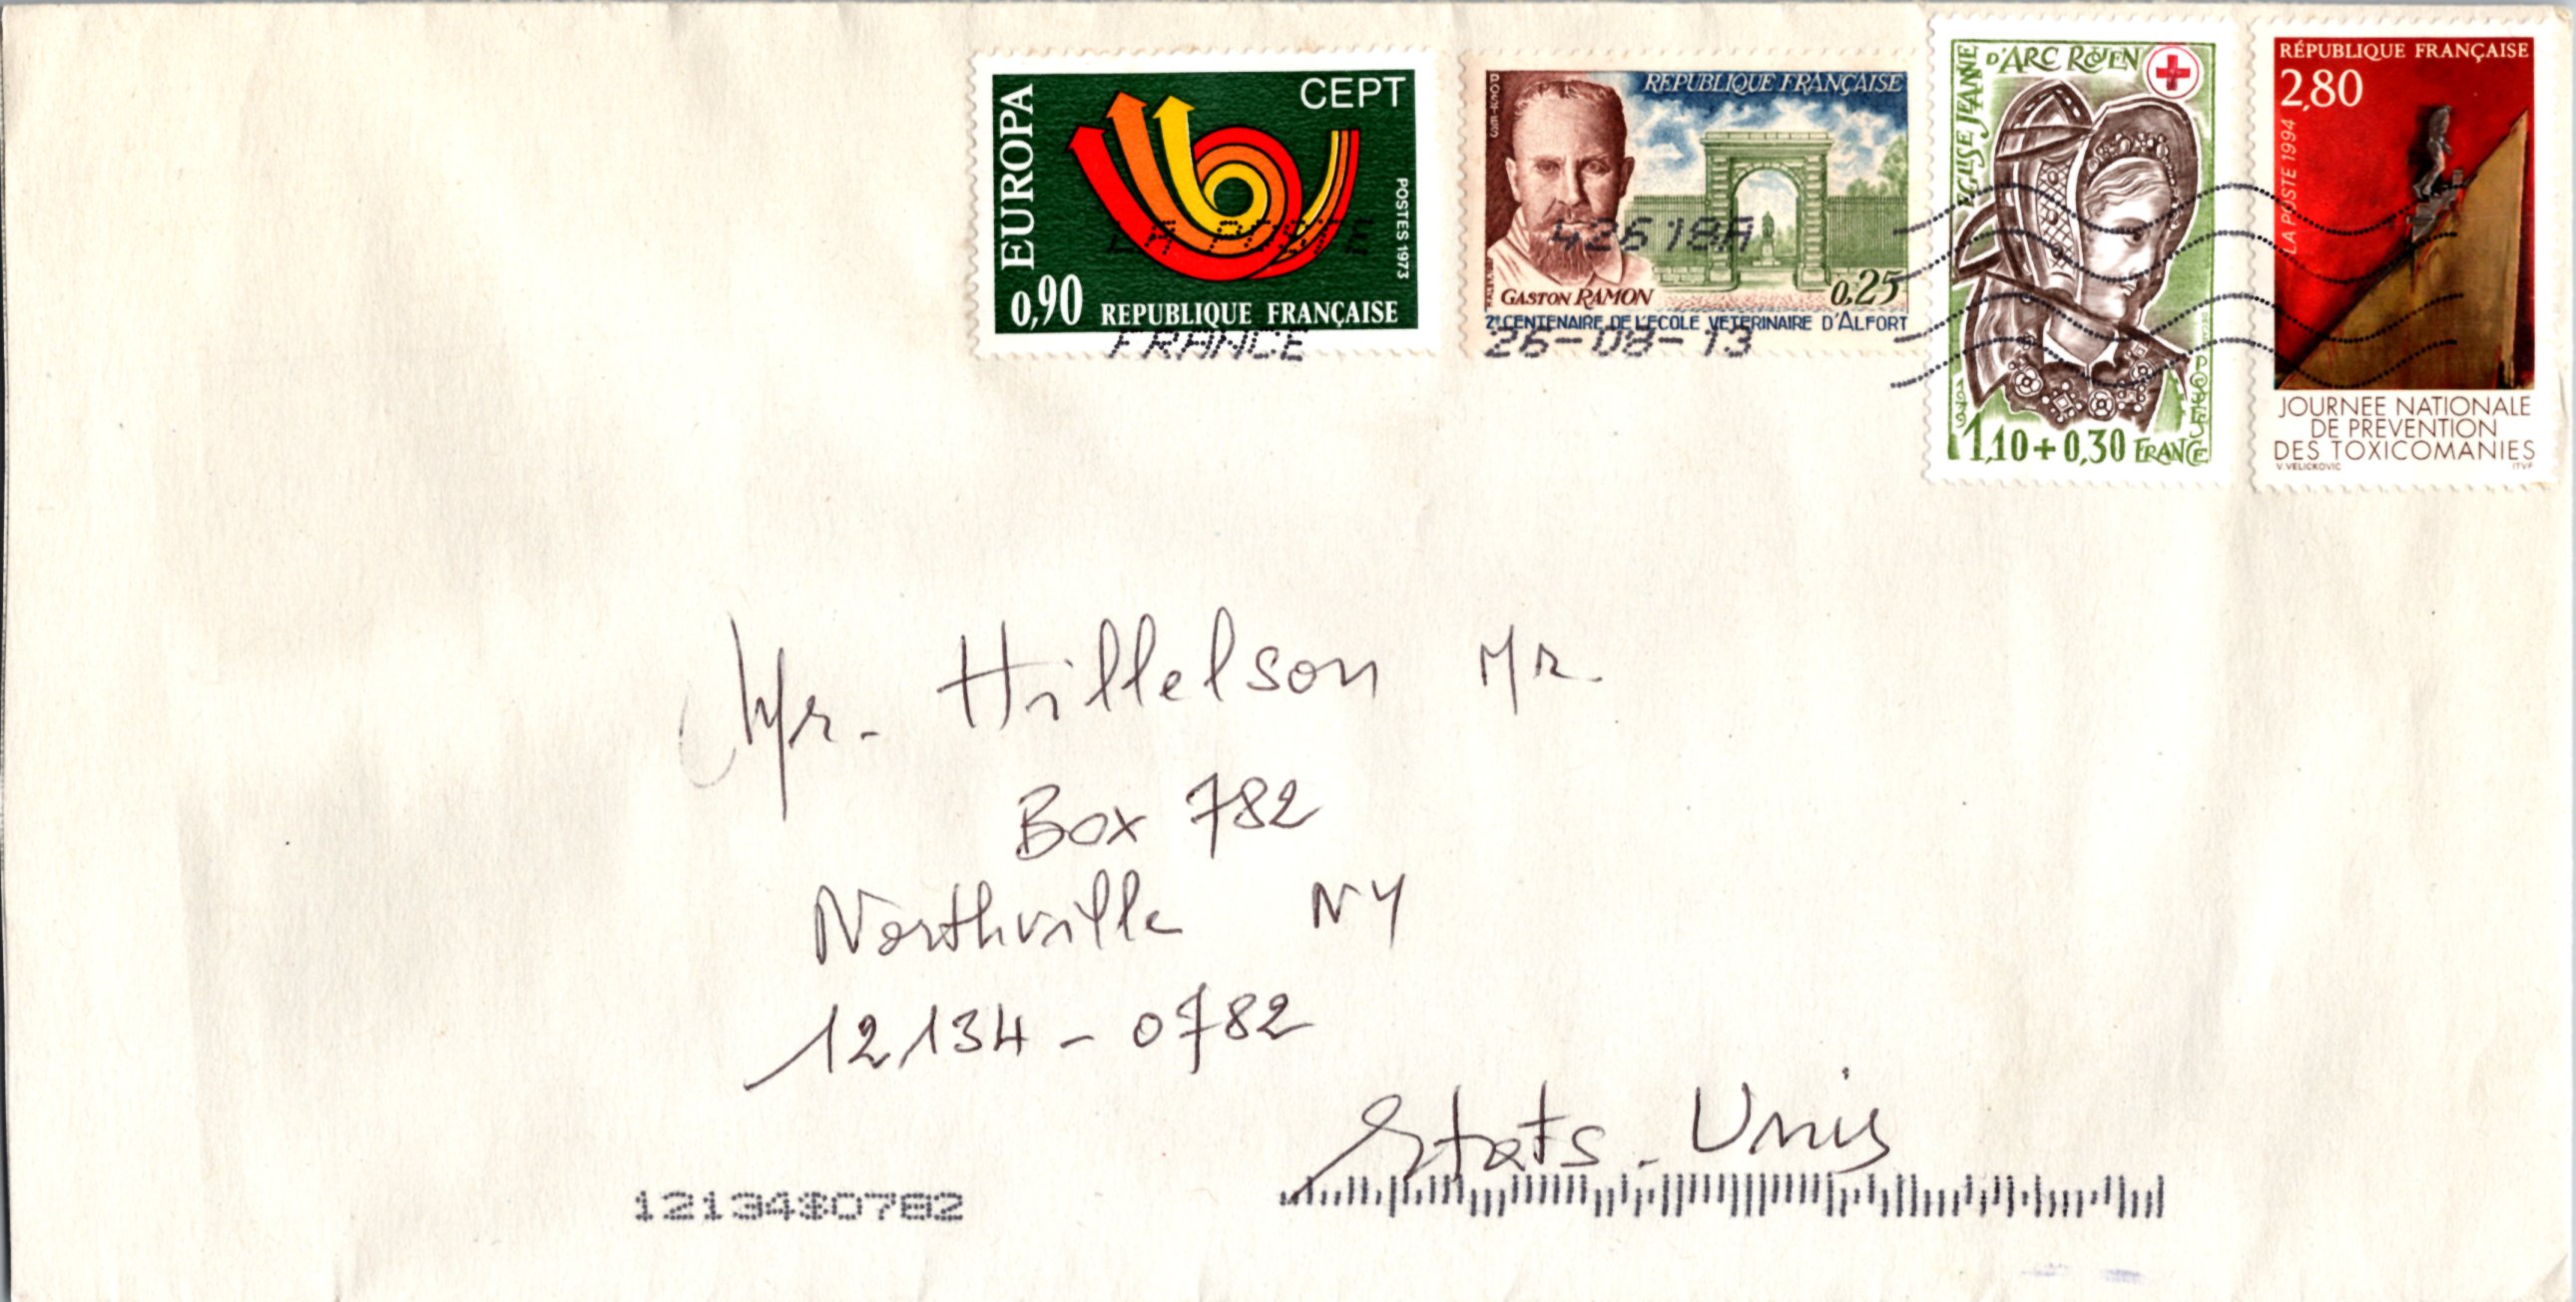 EUROPA
CEPT
POSTES 1973
0,90 REPUBLIQUE FRANÇAISE
POSTES
REPUBLIQUE FRANÇAISE
GASTON RAMON
0,25
2e CENTENAIRE DE L'ECOLE VETERINAIRE D'ALFORT
EGLISE JEANNE
D'ARC ROUEN
POSTES
1979
1,10+0,30 FRANCE
RÉPUBLIQUE FRANÇAISE
2,80
LA POSTE 1994
JOURNEE NATIONALE
DE PREVENTION
DES TOXICOMANIES
V. VELICKOVIC
ITVF
LA POSTE
42618A
FRANCE
26-08-13
Mr. Hillelson Mr.
Box 782
Northville NY
12134-0782
Etats-Unis
12134$0782